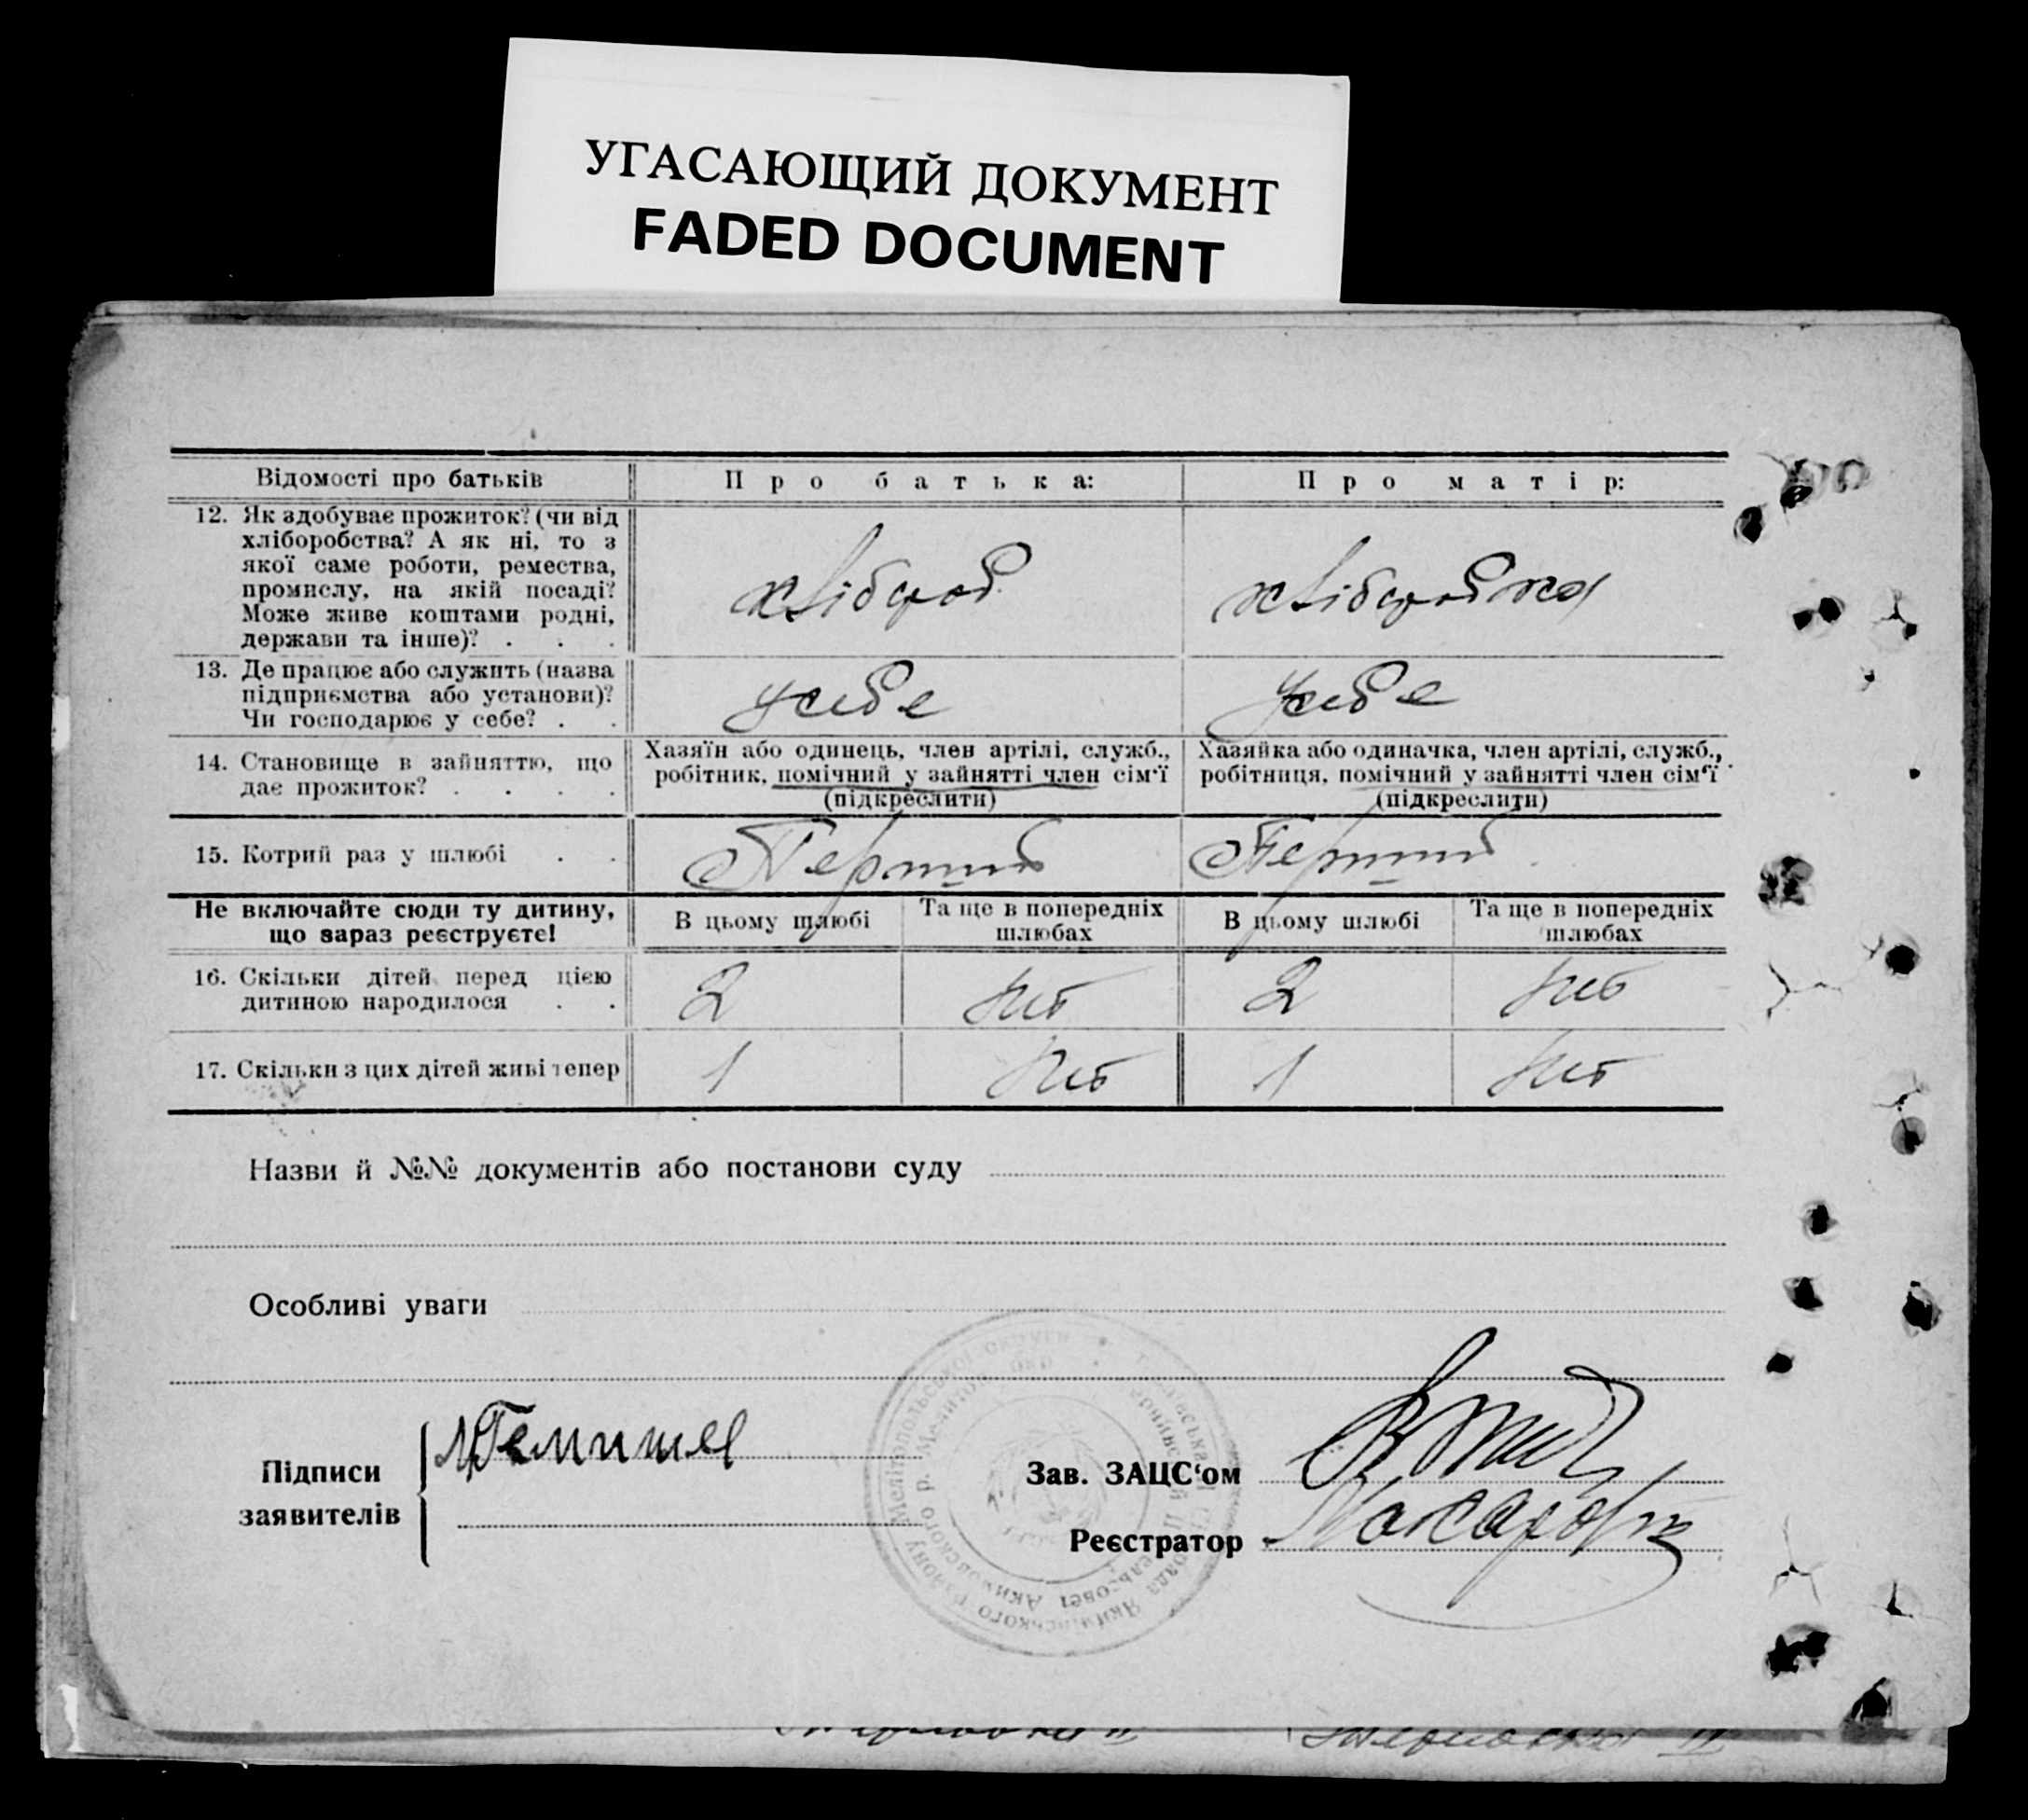 УГАСАЮЩИЙ ДОКУМЕНТ
FADED DOCUMENT
Відомості про батьків
Про батька:
Про матір:
12. Як здобуває прожиток? (чи від
хліборобства? А як ні, то з
якої саме роботи, ремества,
промислу, на якій посаді?
Може живе коштами родні,
держави та інше)? . . .
хлібороб
хліборобка
13. Де працює або служить (назва
підприємства або установи)?
Чи господарює у себе? . .
у себе
у себе
14. Становище в зайняттю, що
дає прожиток? . . . .
Хазяїн або одинець, член артілі, служб.,
робітник, помічний у зайнятті член сім'ї
(підкреслити)
Хазяйка або одиначка, член артілі, служб.,
робітниця, помічний у зайнятті член сім'ї
(підкреслити)
15. Котрий раз у шлюбі . .
Перший
Перший
Не включайте сюди ту дитину,
що зараз реєструєте!
В цьому шлюбі
Та ще в попередніх
шлюбах
В цьому шлюбі
Та ще в попередніх
шлюбах
16. Скільки дітей перед цією
дитиною народилося . .
2
2
17. Скільки з цих дітей живі тепер
1
1
Назви й №№ документів або постанови суду
Особливі уваги
Підписи
заявителів
Зав. ЗАЦС'ом
Реєстратор